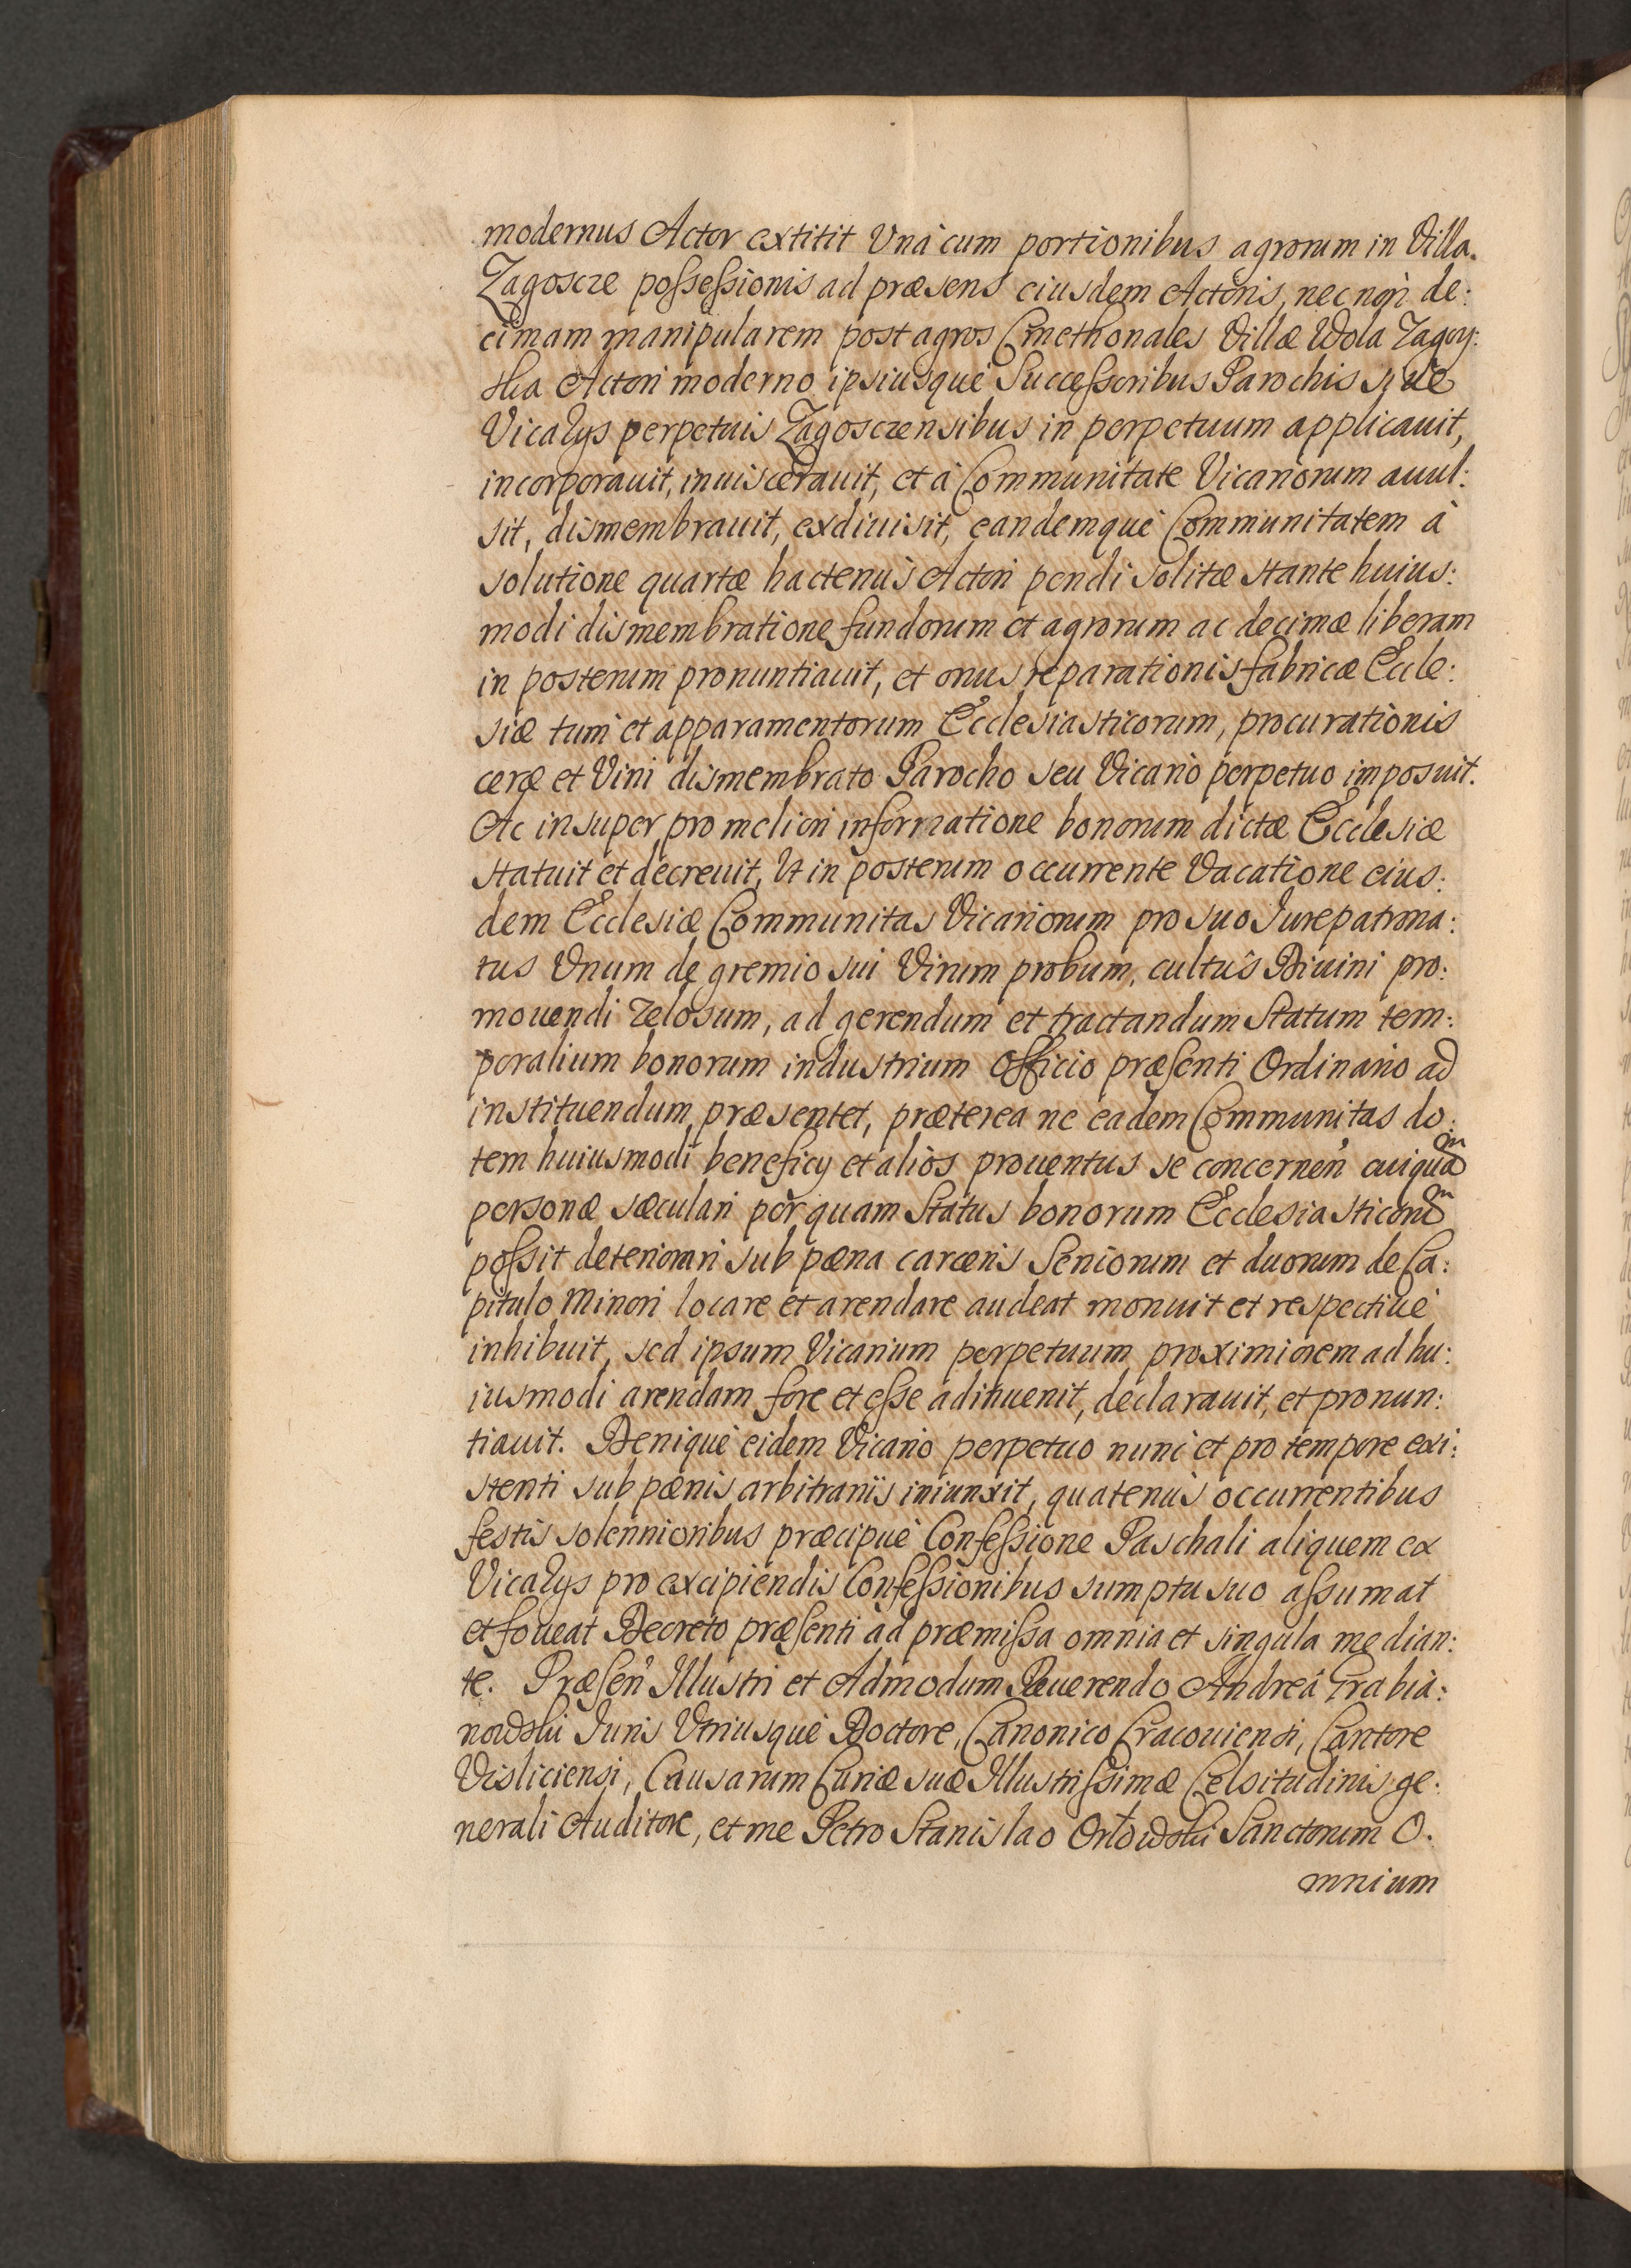 modernus Actor extitit Unà cum portionibus agrorum in Villa.
Zagoscze poſseſsionis ad præsens eiusdem Actoris, nec nòn de:
cimam manipularem post agros Cmethonales Villæ Wola Zagoy:
ska Actori moderno ipsiusquè Succeſsoribus Parochis sive
Vicarys perpetuis Zagosczensibus in perpetuum applicauit,
incorporauit, inuiscerauit, et à Communitate Vicariorum auul:
sit, dismembrauit, exdiuisit, eandemquè Communitatem à
solutione quartæ hactenùs Actori pendi solitæ stante huius:
modi dismembratione fundorum et agrorum ac decimæ liberam
in posterum pronuntiauit, et onus reparationis fabricæ Eccle:
siæ tùm et apparamentorum Ecclesiasticorum, procurationis
ceræ et Vini dismembrato Parocho seu Vicario perpetuo imposuit.
Ac insuper pro meliori informatione bonorum dictæ Ecclesiæ
statuit et decreuit, Ut in posterum occurrente Vacatione eius:
dem Ecclesiæ Communitas Vicariorum pro suo Iurepatrona:
tus Unum de gremio sui Virum probum, cultûs Diuini pro:
mouendi zelosum, ad gerendum et tractandum Statum tem:
poralium bonorum industrium Officio præsenti Ordinario ad
instituendum præsentet, præterea ne eadem Communitas do:
tem huiusmodi beneficy et alios prouentus se concernen̉ cuiquãm
personæ sæculari per quam Status bonorum Ecclesiasticorũm
poſsit deteriorari sub pœna carceris Seniorum et duorum de Ca:
pitulo Minori locare et arendare audeat monuit et respectiuè
inhibuit, sed ipsum Vicarium perpetuum proximiorem ad hu:
iusmodi arendam fore et eſse adinuenit, declarauit, et pronun:
tiauit. Deniquè eidem Vicario perpetuo nunc et pro tempore exi:
stenti sub pœnis arbitrariis iniunxit, quatenùs occurrentibus
festis solennioribus præcipuè Confeſsione Paschali aliquem ex
Vicarys pro excipiendis Confeſsionibus sumptu suo aſsumat
et foueat Decreto præsenti ad præmiſsa omnia et singula median:
te. Præsen̉ Illustri et Admodum Reuerendo Andreâ Grabia:
nowski Iuris Utriusquè Doctore, Canonico Cracouiensi, Cantore
Visliciensi, Causarum Curiæ suæ Illustriſsimæ Celsitudinis ge:
nerali Auditore, et me Petro Stanislao Orłowski Sanctorum O.
mnium